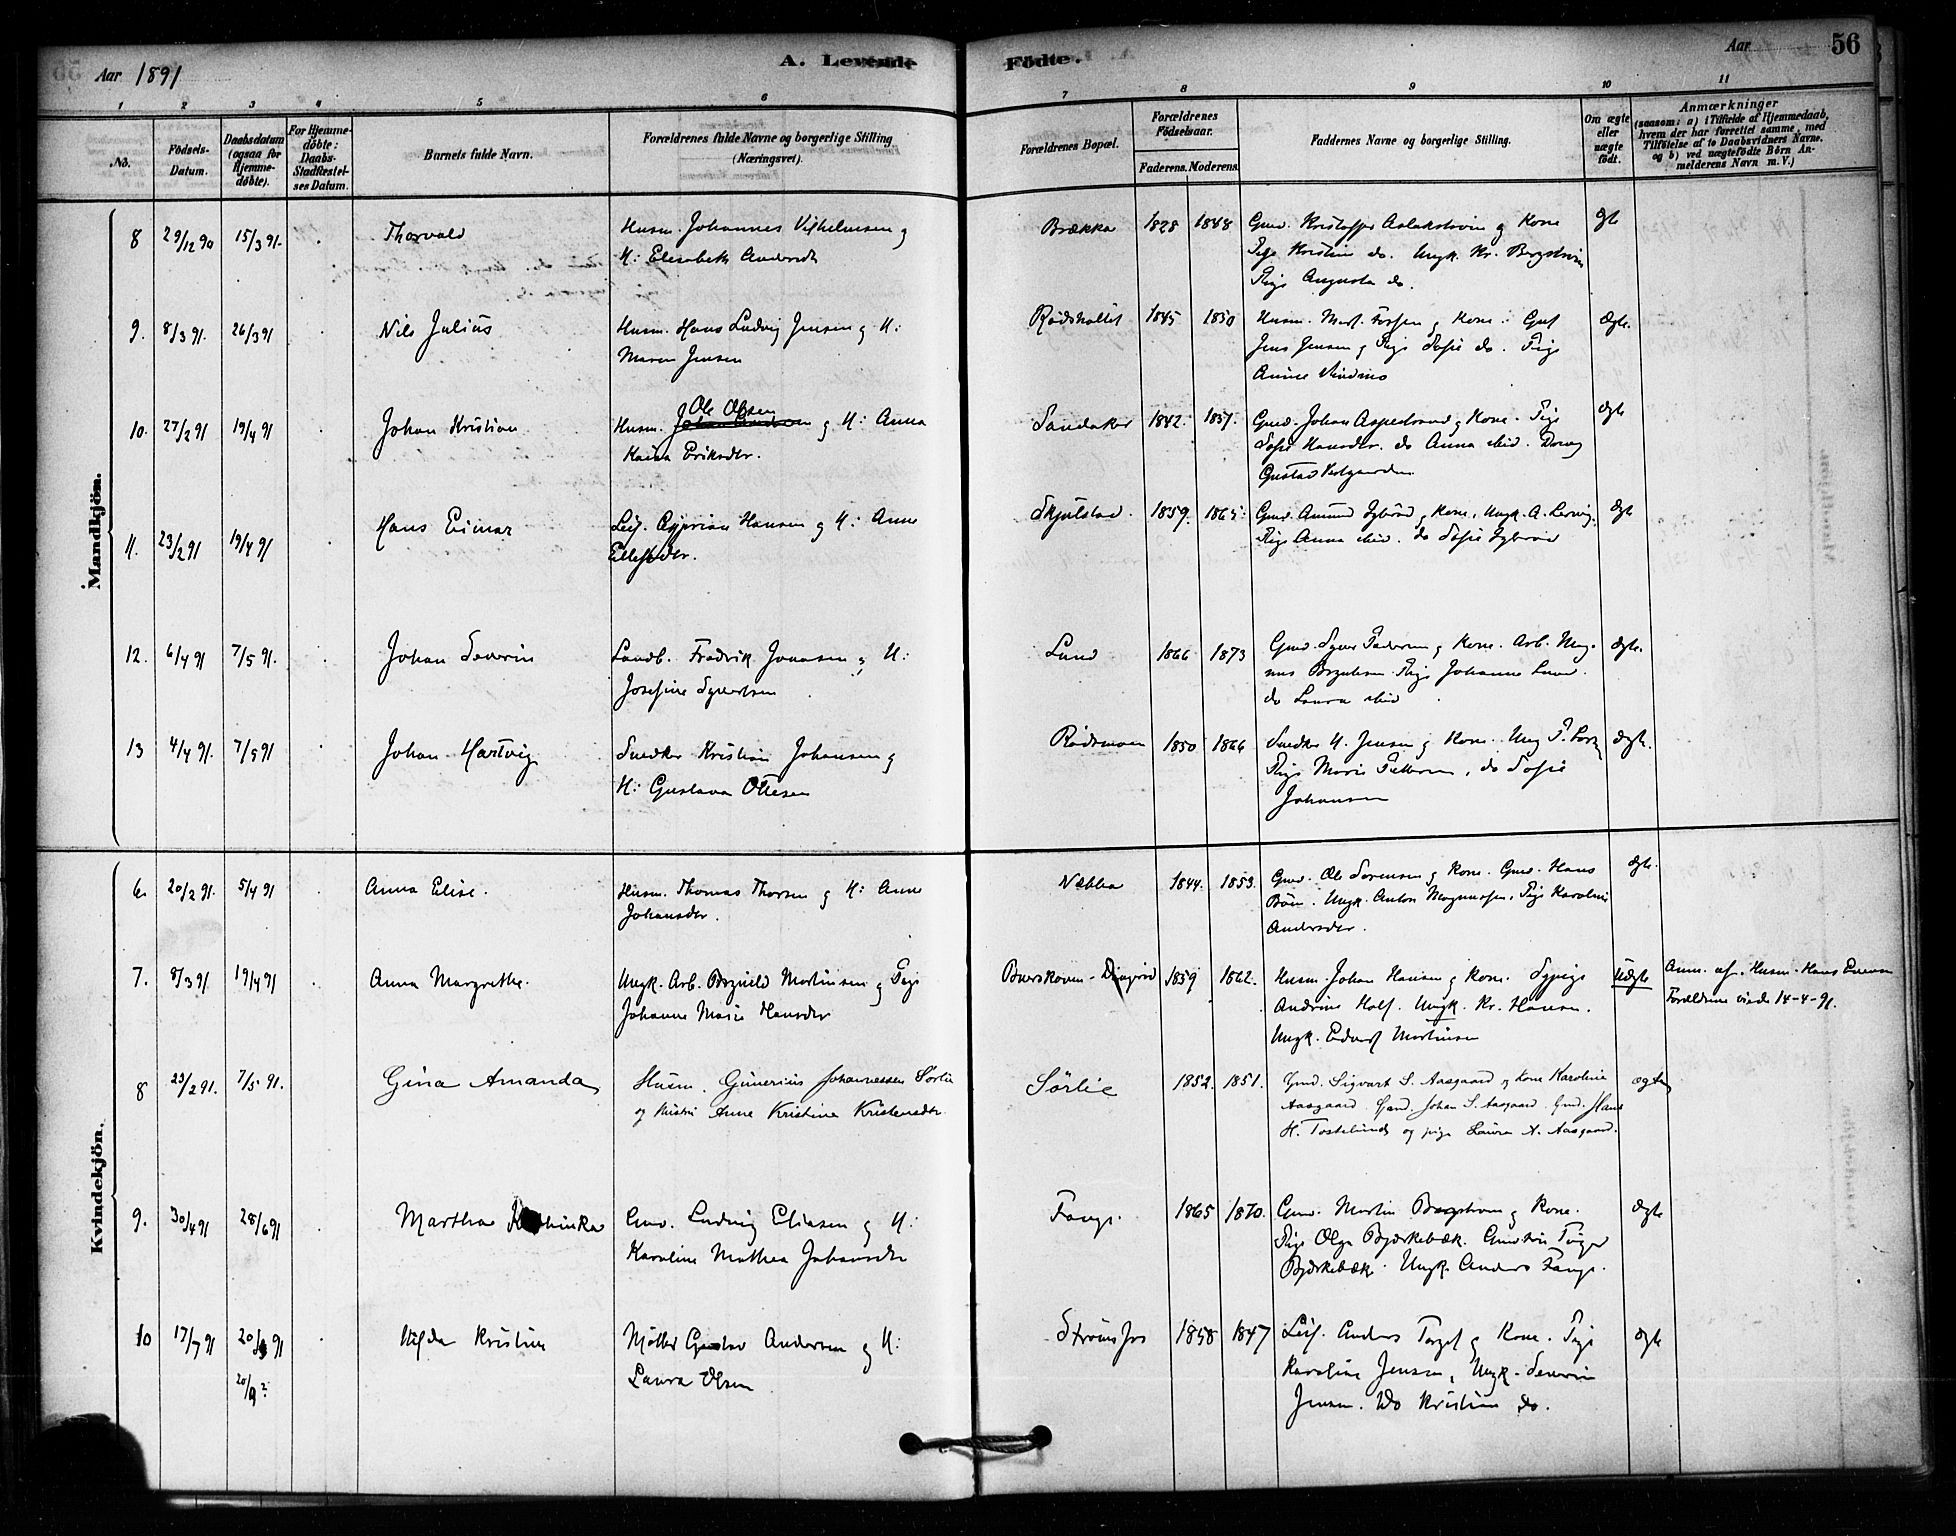 Aar 1891
A. Levende Födte.
Aar
56
1 2 3 4 5 6 7 8 9 10 11
No.
Födsels-Datum.
Daabsdatum (ogsaa for Hjemme-döbte).
For Hjemme-döbte: Daabs-Stadfæstel-ses Datum.
Barnets fulde Navn.
Forældrenes fulde Navne og borgerlige Stilling (Næringsvei).
Forældrenes Bopæl.
Forældrenes Födselsaar.
Faderens. Moderens.
Faddernes Navne og borgerlige Stilling.
Om ægte eller uægte födt.
Anmærkninger (saasom: a) i Tilfælde af Hjemmedaab, hvem der har forrettet samme, med Tilföielse af to Daabsvidners Navne, og b) ved uægtefödte Börn Anmelderens Navn m. V.)
Mandkjön.
8 29/12 90 15/3 91. Thorvald Husm. Johannes Vilhelmsen og Brække 1828 1848 Gmd. Kristoffer Aslakstrøm og Kone ægte
H: Elisabeth Andersdt Pige Kristine do. Ungk. Kr.
Pige Augusta do.
9. 8/3 91. 26/3 91 Nils Julius Husm. Hans Ludvig Jensen og H: Rødshallet 1845 1850 Husm. Mart. og Kone. ægte.
Maren Jensen Jens Jensen og Pige Sofie do. Pige
Anine
10. 27/2 91 19/4 91 Johan Kristian Husm. Ole Olsen og H: Anna Sandaker 1842. 1857. Gmd. Johan Aspestrand og Kone. Pige ægte
Karina Eriksdtr. Sofie Hansdtr. do Anna ibid. Dreng
Gustav
11. 23/2 91 19/4 91 Hans Einar Leif. Cyprian Hansen og H: Anne Skjulstad. 1859. 1865. Gmd. Amund og Kone. Ungk. A. ægte
Ellefsdtr. Pige Anna ibid. do Sofie
12. 6/4 91 7/5 91. Johan Severin Landb. Fredrik Jonasen og H: Lund 1866 1873 Gmd. og Kone. Arb. Mag- ægte.
Josefine Syvertsen nus Pige Johanne Lund.
do Laura ibid
13 4/4 91. 7/5 91 Johan Hartvig Snedker Kristian Johansen og Rødsmoen 1850 1866 Snedker H. Jensen og Kone. ægte.
H: Gustava Ottesen Pige Marie Pettersen, do Sofie
Johansen
Kvindekjön.
6. 20/2 91. 5/4 91 Anna Elise. Husm. Thomas Thorsen og H: Anne Næbba 1844. 1853. Gmd. Ole Sørensen og Kone. Gmd. Hans ægte.
Johansdtr. Ungk. Anton Magnussen. Pige Karoline
Andersdtr.
7. 8/3 91. 19/4 91 Anna Margrethe. Ungk. Arb. Bernhard Martinsen og Pige 1859 1862. Husm. Johan Hansen og Kone. Sypige Uægte Anm. af Husm. Hans
Johanne Marie Hansdtr Andrine Ungk. Kr. Hansen. Forældrene viede 14-4-91.
Ungk. Edvart Martinsen
8 23/2 91. 7/5 91. Gina Amanda Husm. Gunerius Johannessen Sørlie Sørlie 1852. 1851. Gmd. Sigvart S. Aasgaard og Kone Karoline ægte
og Hustru Anne Kristine Kristensdtr. Aasgaard. Gmd. Johan S. Aasgaard. Gmd. Hans
H. Tostelund og pige Laura A. Aasgaard.
9. 30/4 91 28/6 91 Martha Gmd. Ludvig Eliasen og H: Fange. 1865 1870. Gmd. Martin Bergstrøm og Kone. ægte
Karoline Mathea Johansdtr Pige Olga Bjerkebæk. Gmdsøn
Bjerkebæk. Ungk. Anders Fange.
10 17/7 91 20/ 91 Hilda Kristine Møller Gustav Andersen og H: Strømsfos 1858 1847 Leif. Anders og Kone. Pige ægte
20/9? Laura Olsen Karoline Jensen, Ungk. Severin
Jensen. do Kristine do.